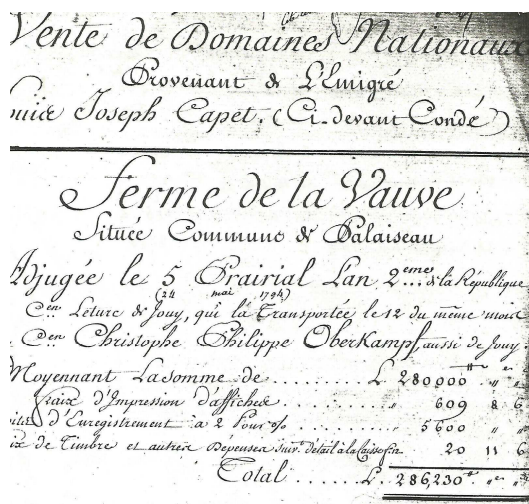 Vente de Domaines Nationaux
Provenant de L'Emigré
Joseph Capet. (Ci-devant Condé)
Ferme de la Vauve
Située Commune de Palaiseau
Adjugée le 5 Prairial L'an 2eme de la République
(24 mai 1794)
Cen Leture de Jouy, qui l'a Transportée le 12 du même mois
Cen Christophe Philippe Oberkampf, aussi de Jouy.
Moyennant La somme de ........ £ 280,000 " "
fraix d'Impression d'affiches ........ " 609 8 6
d'Enregistrement à 2 Pour % ........ " 5600 " "
de Timbre et autres Dépenses suiv. détail à la 20 11 6
Total ........ £. 286,230 " "